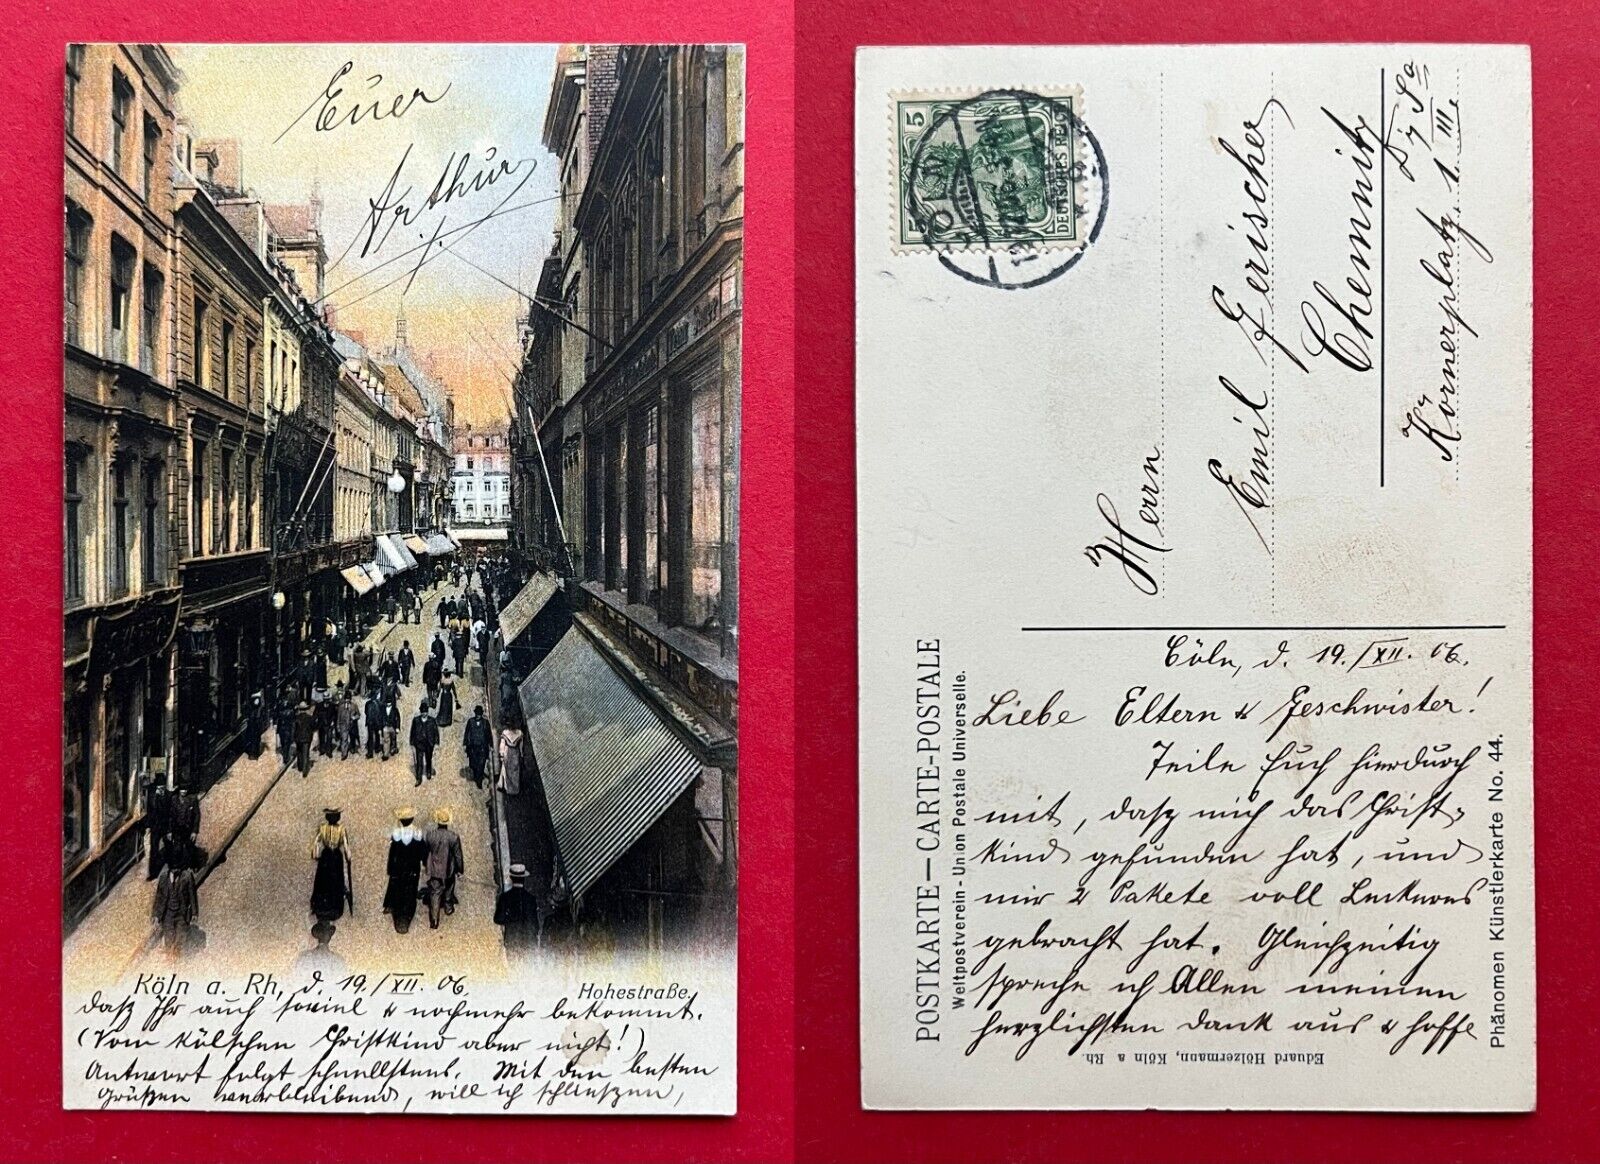 Euer
Arthur
Köln a. Rh, d. 19./XII. 06.
Hohestraße.
dasz Ihr auch soviel & nochmehr bekommt.
(Vom kölschen Christkind aber nicht!)
Antwort folgt schnellstens. Mit den besten
Grüszen verbleibend, will ich schlieszen,
5 5
DEUTSCHES REICH
Herrn
Emil Gerischer
Chemnitz
Körnerplatz, 1. III.
POSTKARTE—CARTE-POSTALE
Weltpostverein - Union Postale Universelle.
Cöln, d. 19./XII. 06.
Liebe Eltern & Geschwister!
Teile Euch hierdurch
mit, dasz mich das Christ-
kind gefunden hat, und
mir 2 Pakete voll Leckeres
gebracht hat. Gleichzeitig
spreche ich Allen meinen
herzlichsten Dank aus & hoffe
Phänomen Künstlerkarte No. 44.
Eduard Hölzermann, Köln a Rh.